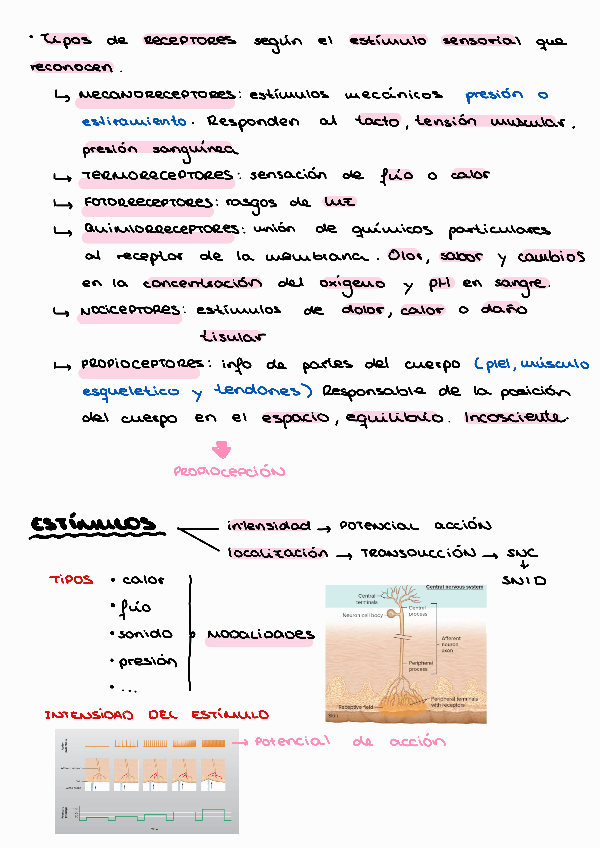 · Tipos de RECEPTORES según el estímulo sensorial que
reconocen.
↳ MECANORECEPTORES: estímulos mecánicos presión o
estiramiento. Responden al tacto, tensión muscular,
presión sanguínea
↳ TERMORECEPTORES: sensación de frío o calor
↳ FOTORRECEPTORES: rasgos de luz
↳ QUIMIORRECEPTORES: unión de químicos particulares
al receptor de la membrana. Olor, sabor y cambios
en la concentración del oxígeno y pH en sangre.
↳ NOCICEPTORES: estímulos de dolor, calor o daño
tisular
↳ PROPIOCEPTORES: info de partes del cuerpo (piel, músculo
esqueletico y tendones) Responsable de la posición
del cuerpo en el espacio, equilibrio. Incosciente.
PROPIOCEPCIÓN
ESTÍMULOS
intensidad → POTENCIAL ACCIÓN
localización → TRANSDUCCIÓN → SNC
↓
SNID
TIPOS
· calor
· frío
· sonido
· presión
· ...
MODALIDADES
Central nervous system
Central
terminals
Neuron cell body
Central
process
Afferent
neuron
axon
Peripheral
process
Receptive field
Peripheral terminals
with receptors
Skin
INTENSIDAD DEL ESTÍMULO
→ Potencial de acción